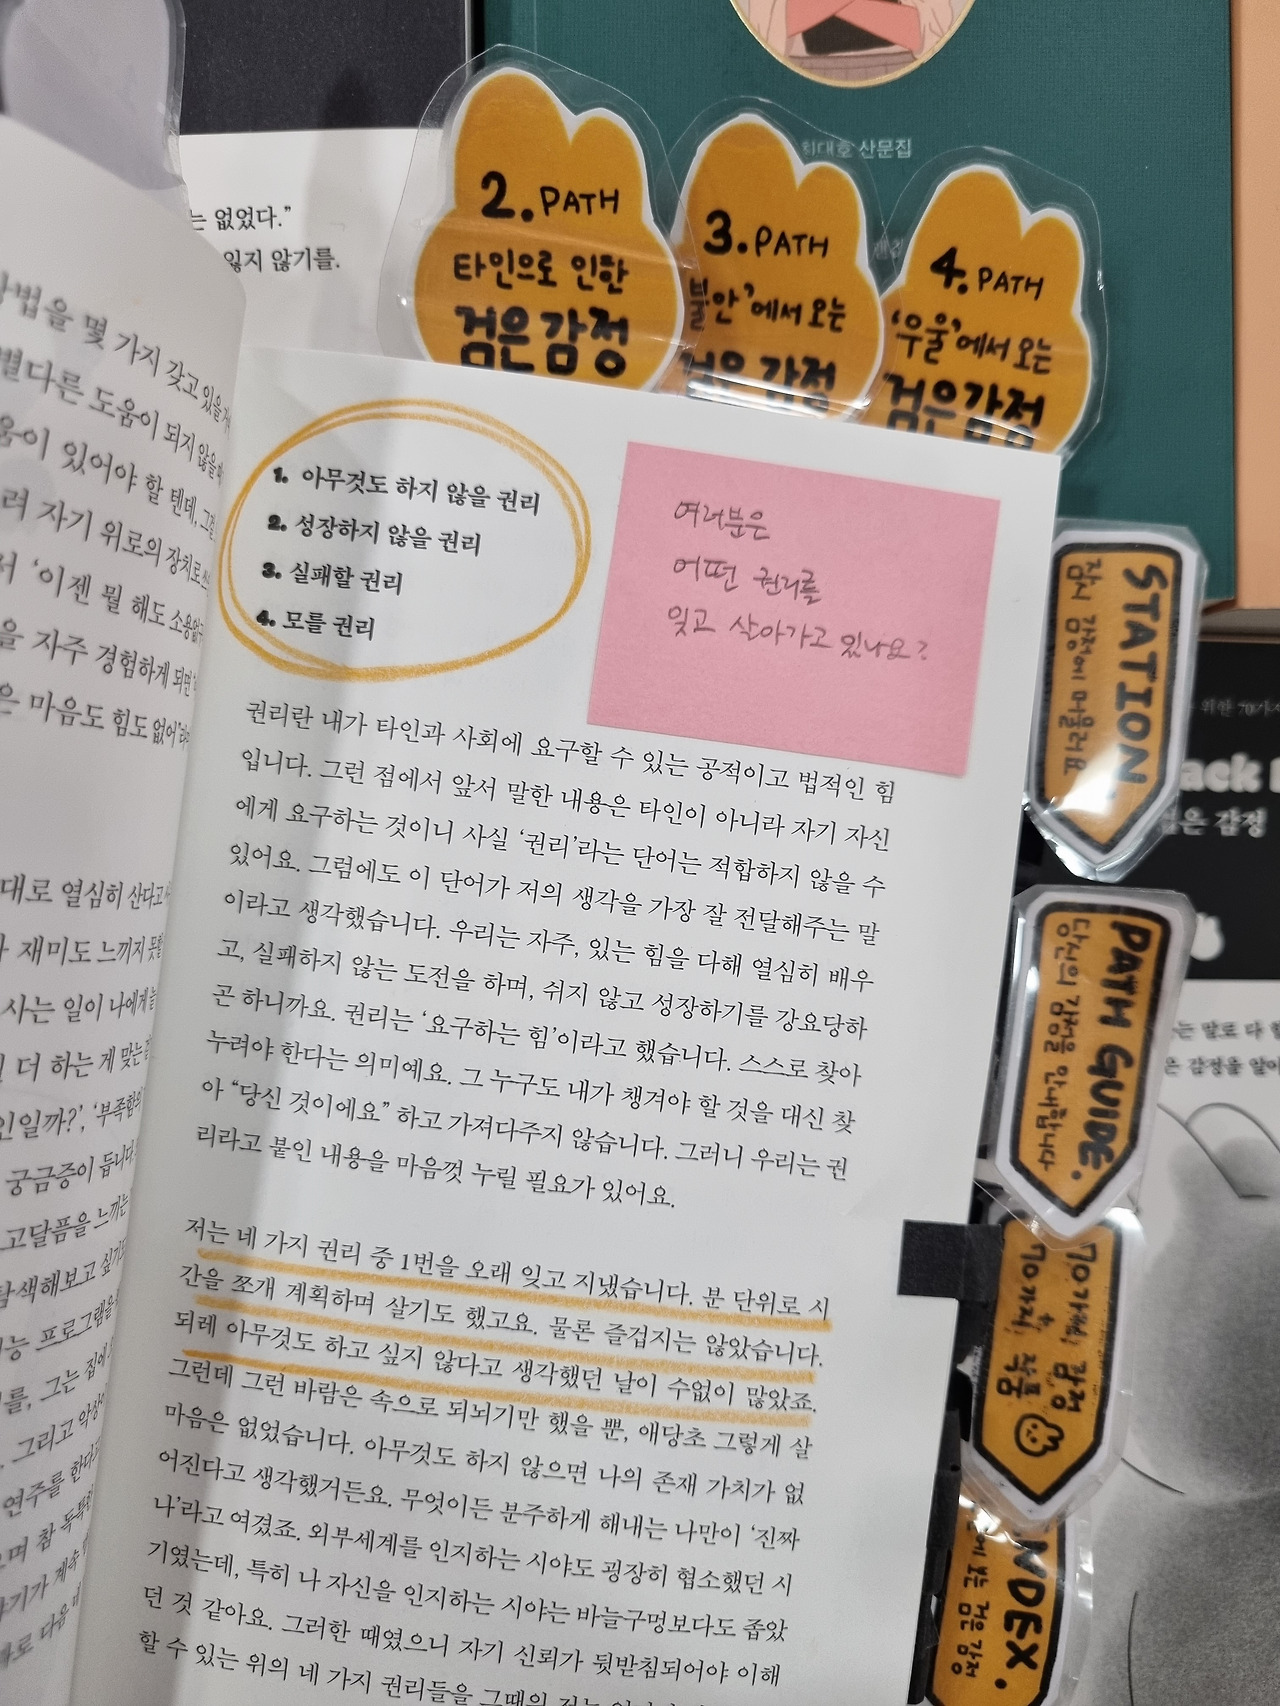 최대호 산문집
는 없었다.”
잃지 않기를.
2. PATH
타인으로 인한
검은 감정
3. PATH
‘불안’에서 오는
검은 감정
4. PATH
‘우울’에서 오는
검은 감정
방법을 몇 가지 갖고 있을
별다른 도움이 되지 않을
움이 있어야 할 텐데, 그럼
려 자기 위로의 장치로
서 ‘이젠 뭘 해도 소용없
을 자주 경험하게 되면
은 마음도 힘도 없어’
대로 열심히 산다고
재미도 느끼지 못할
사는 일이 나에게
더 하는 게 맞는
인일까?’, ‘부족함
궁금증이 듭니다
고달픔을 느끼는
탐색해보고 싶
능 프로그램을
를, 그는 집에
그리고 악상
연주를 한다
며 참 독특한
1. 아무것도 하지 않을 권리
2. 성장하지 않을 권리
3. 실패할 권리
4. 모를 권리
여러분은
어떤 권리를
잊고 살아가고 있나요?
권리란 내가 타인과 사회에 요구할 수 있는 공적이고 법적인 힘
입니다. 그런 점에서 앞서 말한 내용은 타인이 아니라 자기 자신
에게 요구하는 것이니 사실 ‘권리’라는 단어는 적합하지 않을 수
있어요. 그럼에도 이 단어가 저의 생각을 가장 잘 전달해주는 말
이라고 생각했습니다. 우리는 자주, 있는 힘을 다해 열심히 배우
고, 실패하지 않는 도전을 하며, 쉬지 않고 성장하기를 강요당하
곤 하니까요. 권리는 ‘요구하는 힘’이라고 했습니다. 스스로 찾아
누려야 한다는 의미예요. 그 누구도 내가 챙겨야 할 것을 대신 찾
아 “당신 것이에요” 하고 가져다주지 않습니다. 그러니 우리는 권
리라고 붙인 내용을 마음껏 누릴 필요가 있어요.
저는 네 가지 권리 중 1번을 오래 잊고 지냈습니다. 분 단위로 시
간을 쪼개 계획하며 살기도 했고요. 물론 즐겁지는 않았습니다.
되레 아무것도 하고 싶지 않다고 생각했던 날이 수없이 많았죠.
그런데 그런 바람은 속으로 되뇌기만 했을 뿐, 애당초 그렇게 살
마음은 없었습니다. 아무것도 하지 않으면 나의 존재 가치가 없
어진다고 생각했거든요. 무엇이든 분주하게 해내는 나만이 ‘진짜
나’라고 여겼죠. 외부세계를 인지하는 시야도 굉장히 협소했던 시
기였는데, 특히 나 자신을 인지하는 시야는 바늘구멍보다도 좁았
던 것 같아요. 그러한 때였으니 자기 신뢰가 뒷받침되어야 이해
할 수 있는 위의 네 가지 권리들을 그때의 저는
STATION.
잠시 감정에 머물러요
PATH GUIDE.
당신의 감정을 안내합니다
70가지 감정
70가지 작품
INDEX.
검은 감정
위한 70가지
ack
검은 감정
는 말로 다
은 감정을 알아